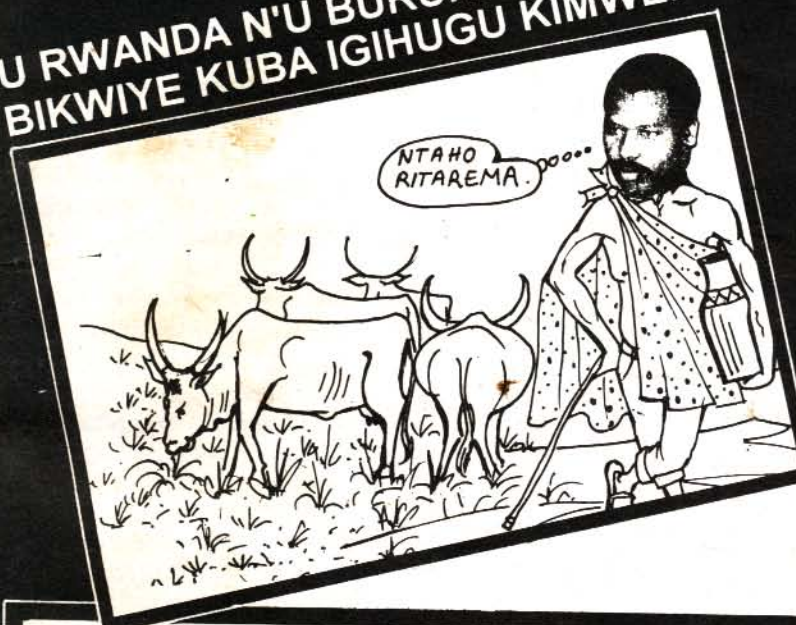 U RWANDA N'U
BIKWIYE KUBA IGIHUGU
NTAHO
RITAREMA.